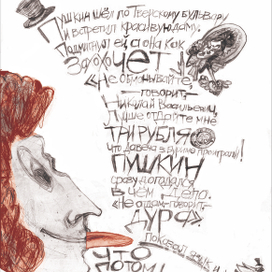 Пушкин шёл по Тверскому бульвару
и встретил красивую даму.
Подмигнул ей, а она как
захохочет!
«Не обманывайте
-говорит-
Николай Васильевич,
лучше отдайте мне
ТРИ РУБЛЯ
что давеча в бурима проиграли!
ПУШКИН
сразу догадался
в чём дело.
«Не отдам-говорит-
ДУРА».
показал язык и
ЧТО
ПОТОМ!